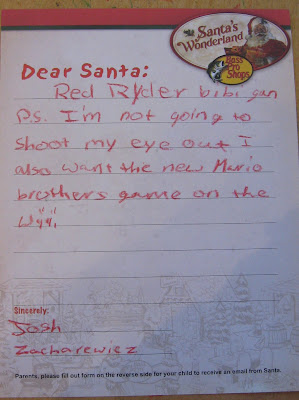 Santa's
Wonderland
Bass
Pro Shops
Dear Santa:
Red Ryder bibi gun
P.s. I'm not going to
shoot my eye out I
also want the new Mario
brothers game on the
Wii.
Sincerely:
Josh
Zacharewicz
Parents, please fill out form on the reverse side for your child to receive an email from Santa.